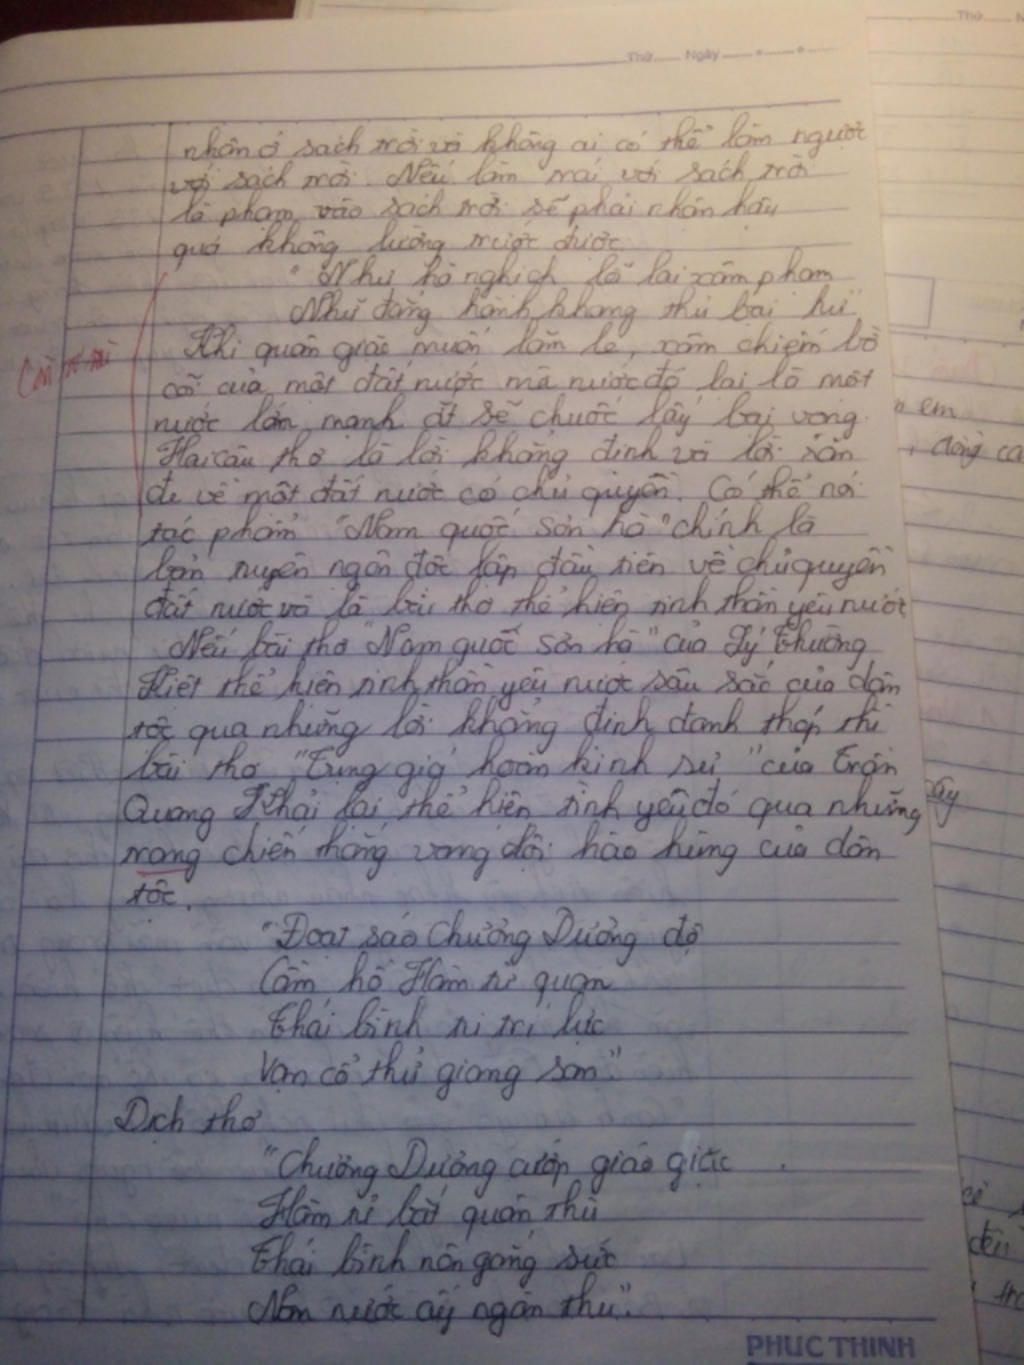 Thứ Ngày
nhận ở sách trời vì không ai có thể làm ngược
với sách trời. Nếu làm trái với sách trời
là phạm vào sách trời sẽ phải nhận hậu
quả không lường trước được
"Như hà nghịch lỗ lai xâm phạm
Nhữ đẳng hành khang thủ bại hư"
Khi quân giặc muốn lăm le, xâm chiếm bờ
cõi của một đất nước mà nước đó lại là một
nước lớn mạnh ắt sẽ chuốc lấy bại vong.
Hai câu thơ là lời khẳng định và lời răn
đe về một đất nước có chủ quyền. Có thể nói
tác phẩm "Nam quốc sơn hà" chính là
bản tuyên ngôn độc lập đầu tiên về chủ quyền
đất nước và là bài thơ thể hiện tinh thần yêu nước
Nếu bài thơ "Nam quốc sơn hà" của Lý Thường
Kiệt thể hiện tinh thần yêu nước sâu sắc của dân
tộc qua những lời khẳng định đanh thép thì
bài thơ "Tụng giá hoàn kinh sư" của Trần
Quang Khải lại thể hiện tình yêu đó qua những
trang chiến thắng vang dội hào hùng của dân
tộc.
"Đoạt sáo Chương Dương độ
Cầm hồ Hàm tử quan
Thái bình tu trí lực
Vạn cổ thử giang san"
Dịch thơ
"Chương Dương cướp giáo giặc
Hàm tử bắt quân thù
Thái bình nên gắng sức
Non nước ấy ngàn thu".
PHUC THINH
em